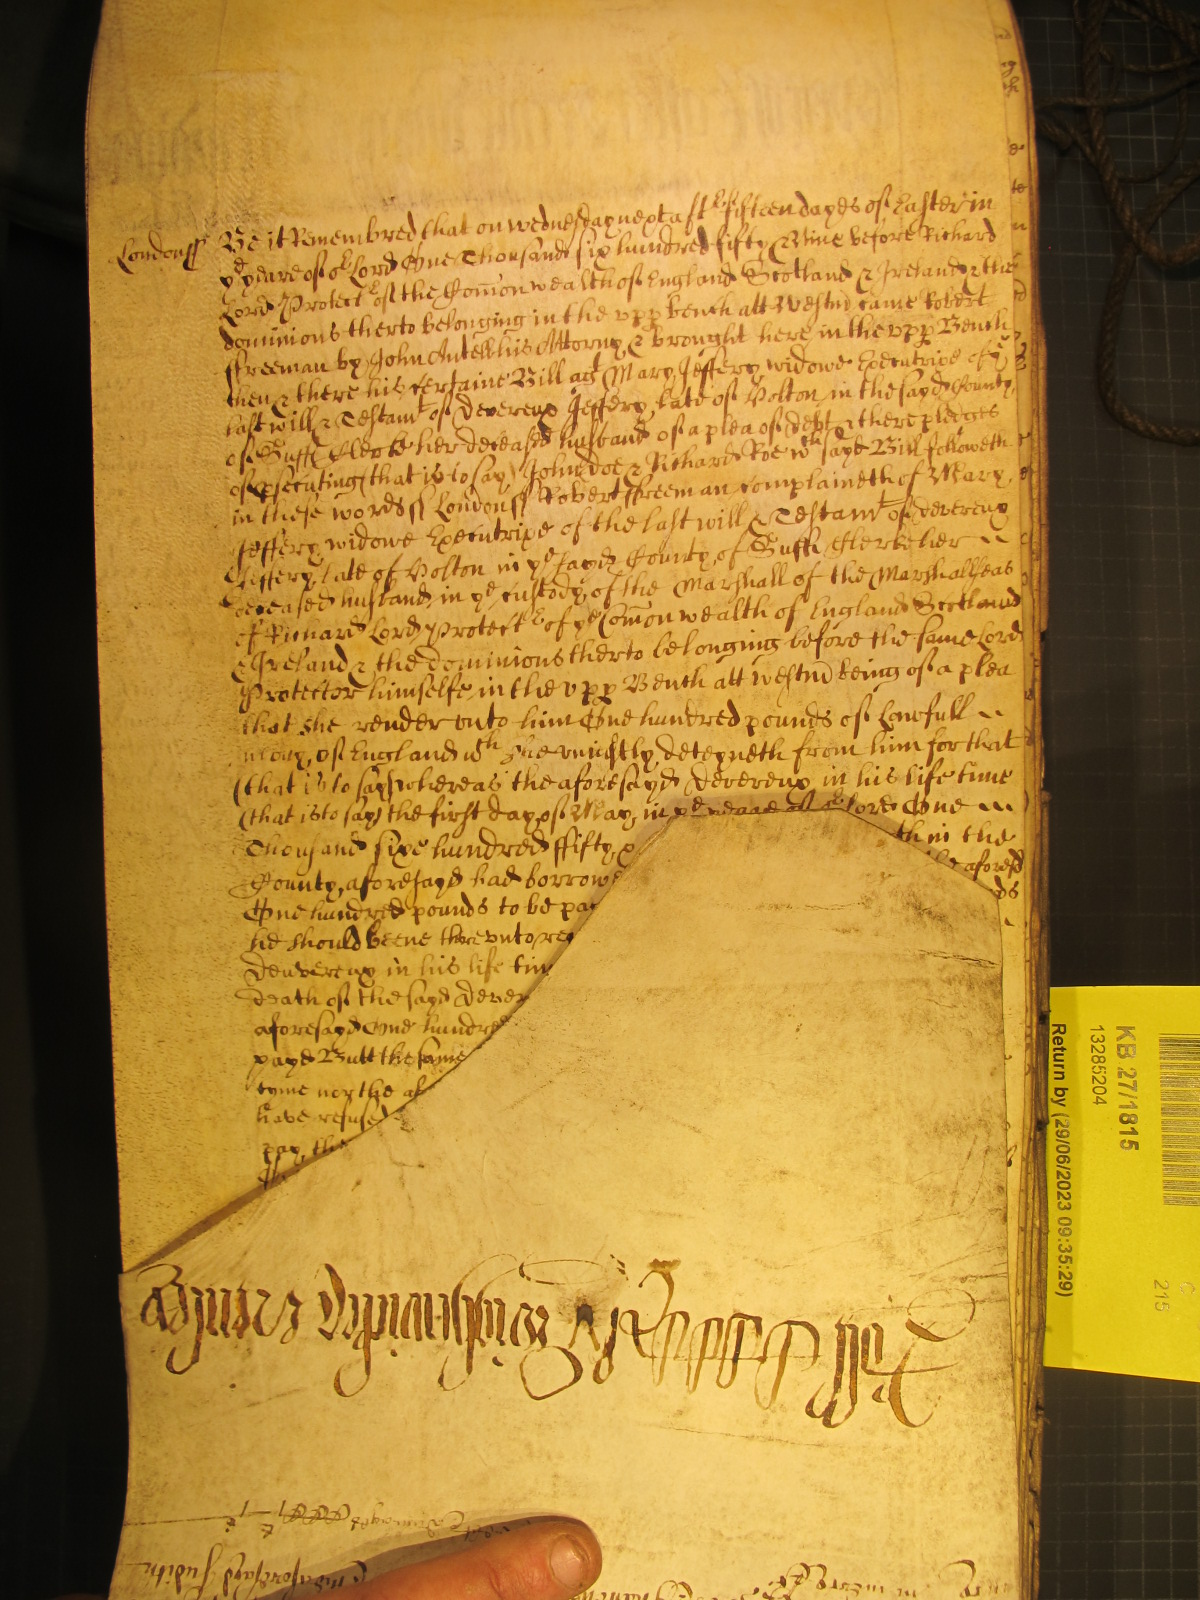 Londonss Be it Remembred that on wednesday next aftr fifteen dayes of Easter in
ye yeare of or Lord One Thousand six hundred fifty & Nine before Richard
Lord Protectr of the Com̄on wealth of England Scotland & Ireland & the
dominions therto belonging in the upp Bench att Westm̄ came Robert
ffreeman by John Antell his Attorny & brought here in the upp Bench
then & there his certaine Bill agt Mary Jeffery widowe Executrixe of ye
last will & Testamt of Devereux Jeffery late of Bolton in the sayd County
of Suff Clerke her deceased husband of a plea of debt & there pledges
of psecuting (that is to say) John Doe & Richard Roe wch sayd Bill followeth
in these words ss Londonss Robert ffreeman complaineth of Mary
Jeffery widowe Executrixe of the last will & Testamt of Devereux
Jeffery late of Bolton in ye sayd County of Suff Clerke her
deceased husband in ye custody of the Marshall of the Marshallseas
of Richard Lord Protectr of ye Com̄on wealth of England Scotland
& Ireland & the dominions therto belonging before the same Lord
Protector himselfe in the upp Bench att westm̄ being of a plea
that she render unto him One hundred pounds of Lawfull
mony of England wch she uniustly deteyneth from him for that
(that is to say) whereas the aforesayd Devereux in his life time
(that is to say) the first day of May in ye yeare of or Lord One
Thousand sixe hundred ffifty th in the
County aforesayd had borrowe aforesd
One hundred pounds to be pay ds
he should beene thereunto req
Deavereux in his life tim
death of the sayd Dever
aforesayd One hundred
payd Butt the same
tyme nor the af
have refused
pay the
KB 27/1815
13285204
Return by (29/06/2023 09:35:29)
215
aforesayd Judith